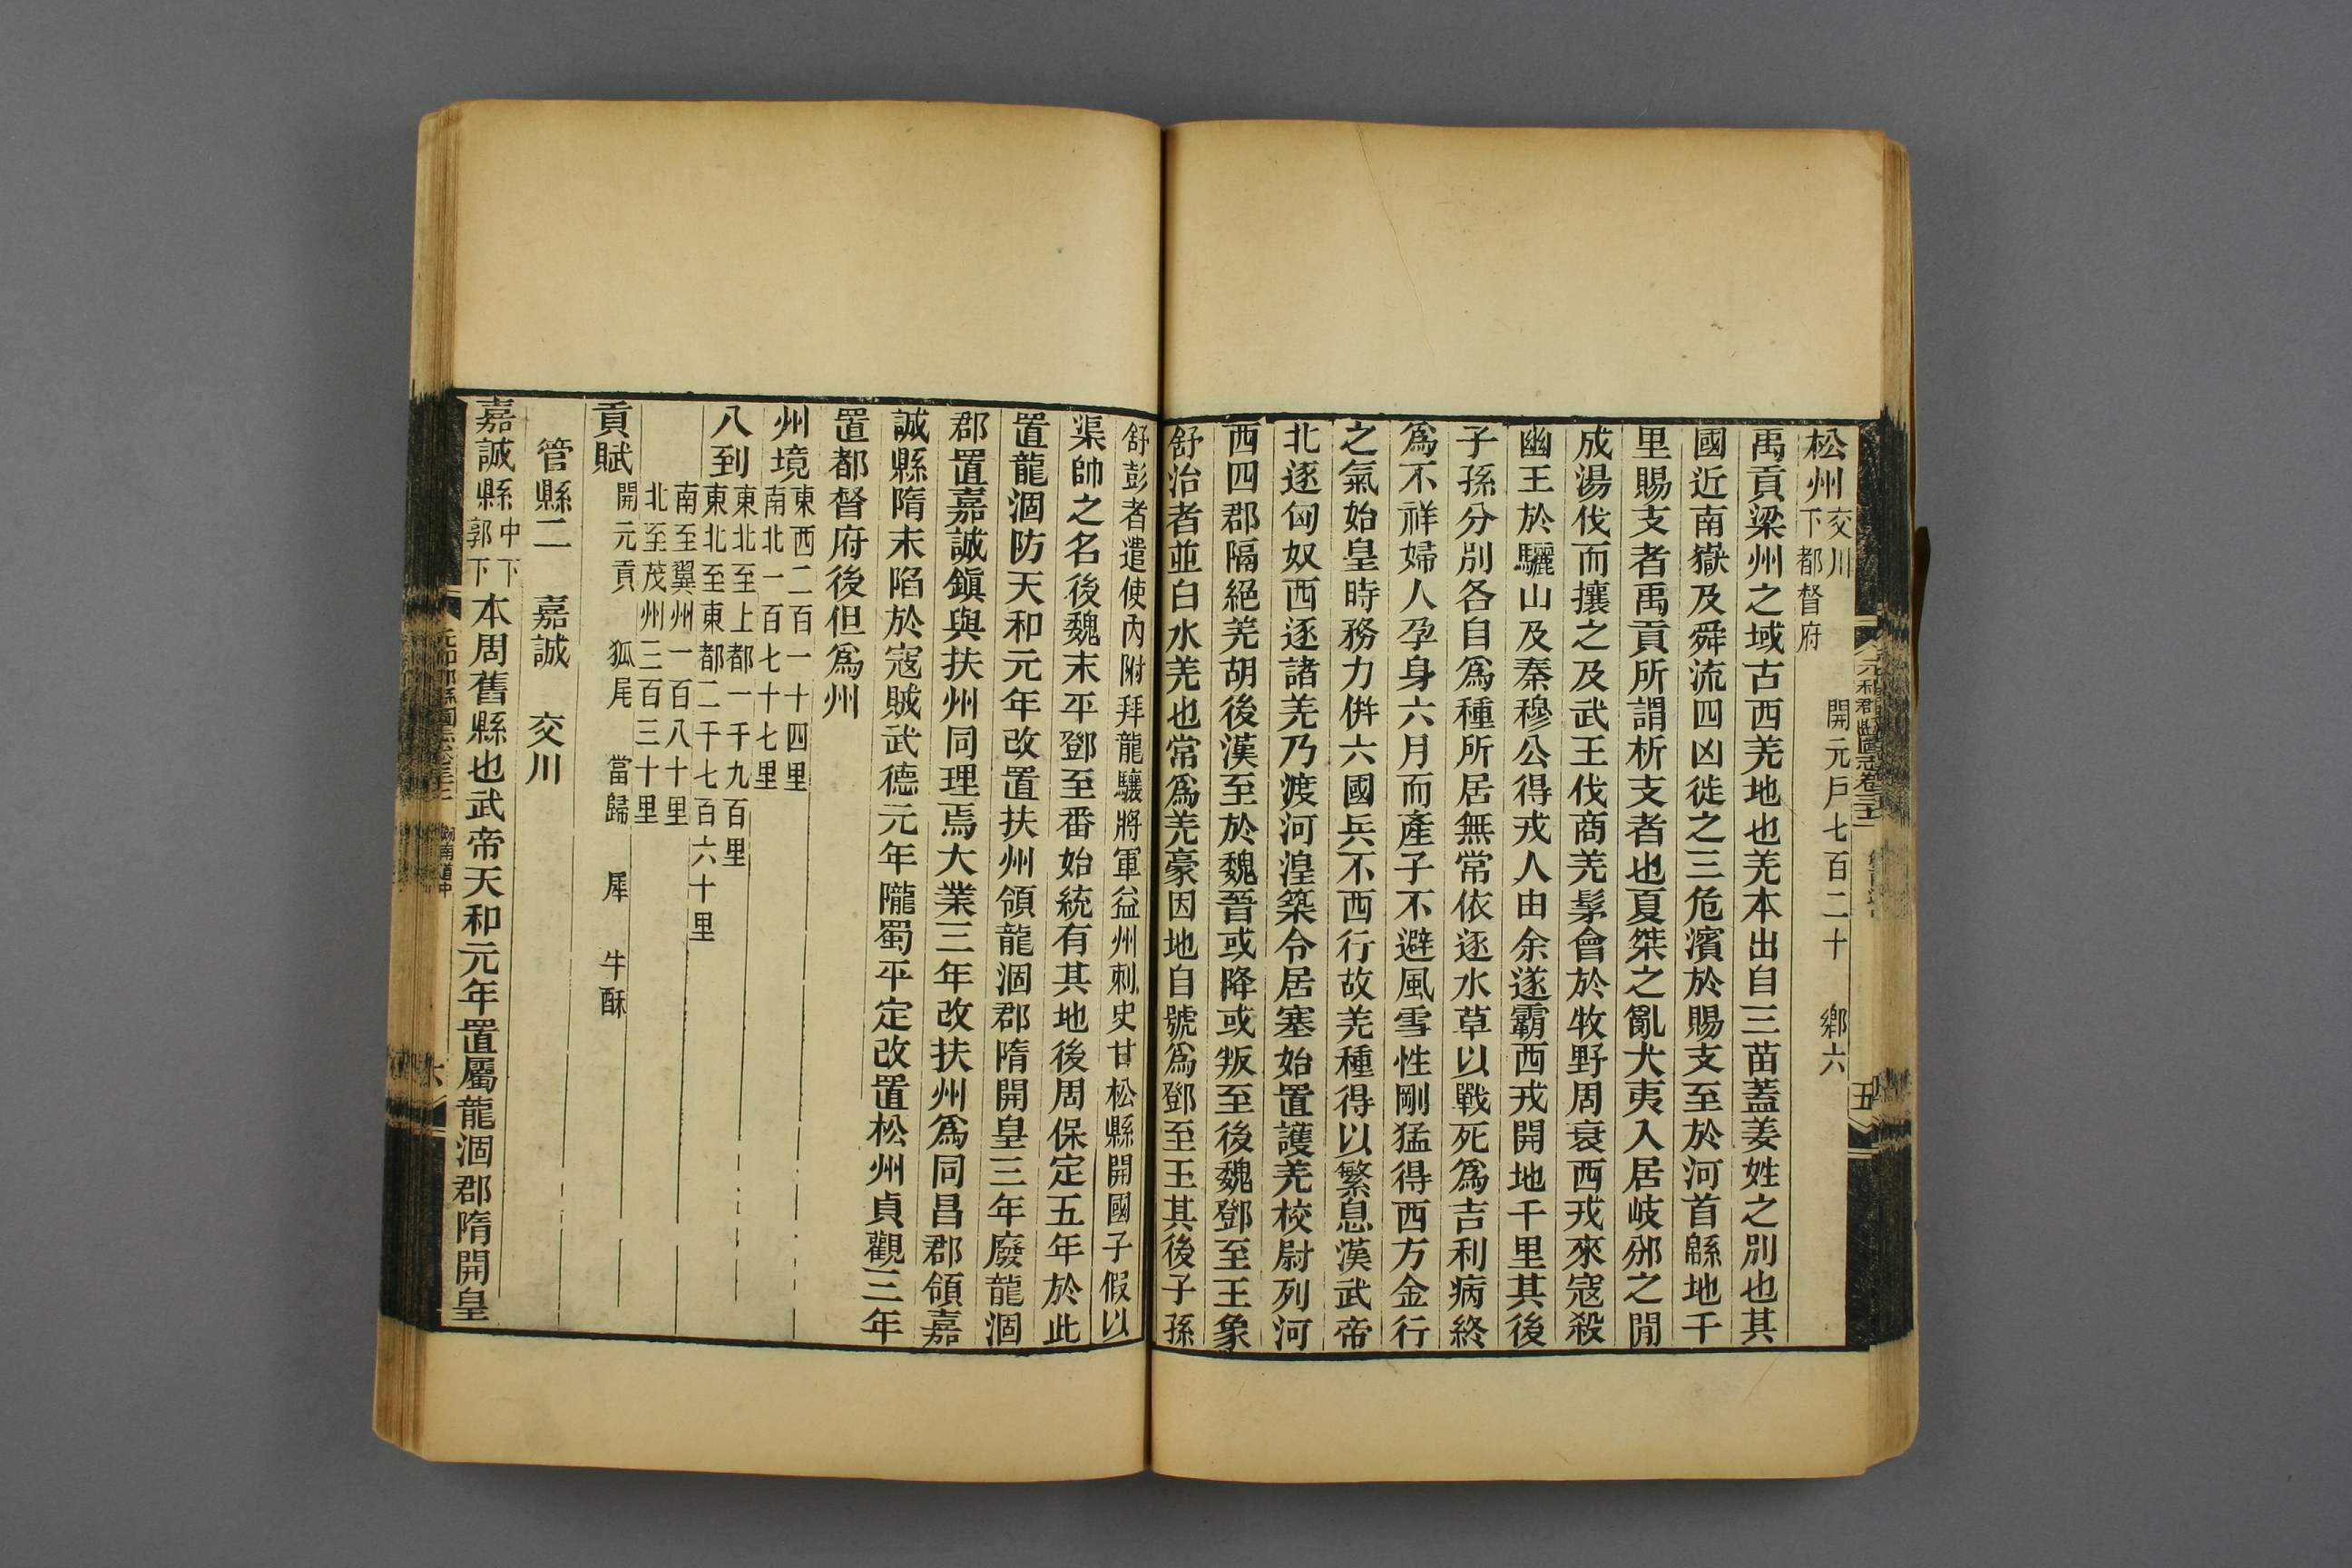 松州交川下都督府　開元戶七百二十　鄉六
禹貢梁州之域古西羌地也羌本出自三苗蓋姜姓之別也其
國近南嶽及舜流四凶徙之三危濱於賜支至於河首緜地千
里賜支者禹貢所謂析支者也夏桀之亂犬夷入居岐邠之閒
成湯伐而攘之及武王伐商羌髳會於牧野周衰西戎來寇殺
幽王於驪山及秦穆公得戎人由余遂霸西戎開地千里其後
子孫分別各自爲種所居無常依逐水草以戰死爲吉利病終
爲不祥婦人孕身六月而產子不避風雪性剛猛得西方金行
之氣始皇時務力併六國兵不西行故羌種得以繁息漢武帝
北逐匈奴西逐諸羌乃渡河湟築令居塞始置護羌校尉列河
西四郡隔絕羌胡後漢至於魏晉或降或叛至後魏鄧至王象
舒治者並白水羌也常爲羌豪因地自號爲鄧至王其後子孫
舒彭者遣使內附拜龍驤將軍益州刺史甘松縣開國子假以
渠帥之名後魏末平鄧至番始統有其地後周保定五年於此
置龍涸防天和元年改置扶州領龍涸郡隋開皇三年廢龍涸
郡置嘉誠鎮與扶州同理焉大業三年改扶州爲同昌郡領嘉
誠縣隋末陷於寇賊武德元年隴蜀平定改置松州貞觀三年
置都督府後但爲州
州境東西二百一十四里
南北一百七十七里
八到東北至上都一千九百里
東北至東都二千七百六十里
南至翼州一百八十里
北至茂州三百三十里
貢賦開元貢　狐尾　當歸　犀　牛酥
管縣二　嘉誠　交川
嘉誠縣中下郭下本周舊縣也武帝天和元年置屬龍涸郡隋開皇
元和郡縣圖志卷三十二
五
六